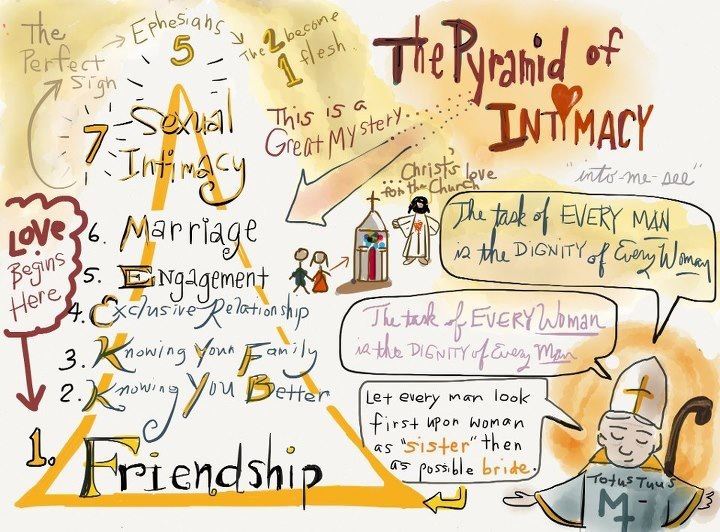 The Pyramid of
INTIMACY
"into-me-see"
The
Perfect
Sign
Ephesians
5
The 2 become
1 flesh.
This is a
Great Mystery...
...Christ's love
...for the Church
7 Sexual
Intimacy
6. Marriage
5. Engagement
4. Exclusive Relationship
3. Knowing Your Family
2. Knowing You Better
1. Friendship
LOVE
Begins
Here
The task of EVERY MAN
is the DIGNITY of Every Woman
The task of EVERY WOMAN
is the DIGNITY of Every Man
Let every man look
first upon woman
as "sister" then
as possible bride.
Totus Tuus
M